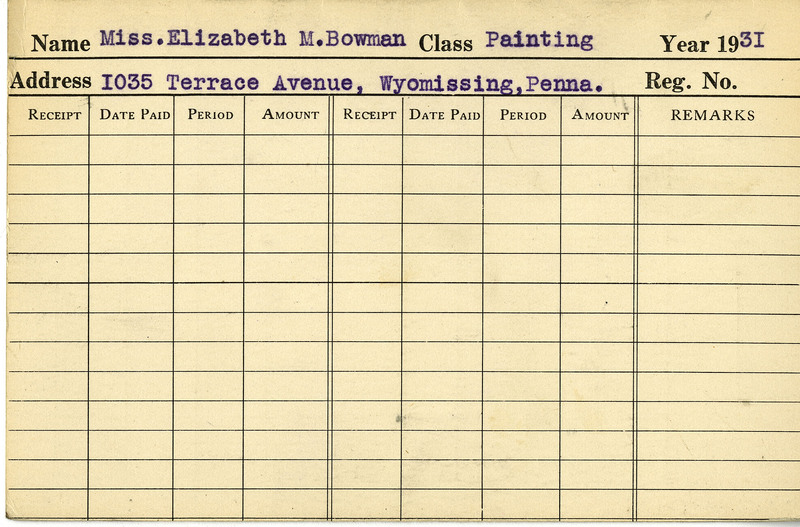 Name Miss.Elizabeth M.Bowman Class Painting Year 1931
Address 1035 Terrace Avenue, Wyomissing,Penna. Reg. No.
RECEIPT DATE PAID PERIOD AMOUNT RECEIPT DATE PAID PERIOD AMOUNT REMARKS